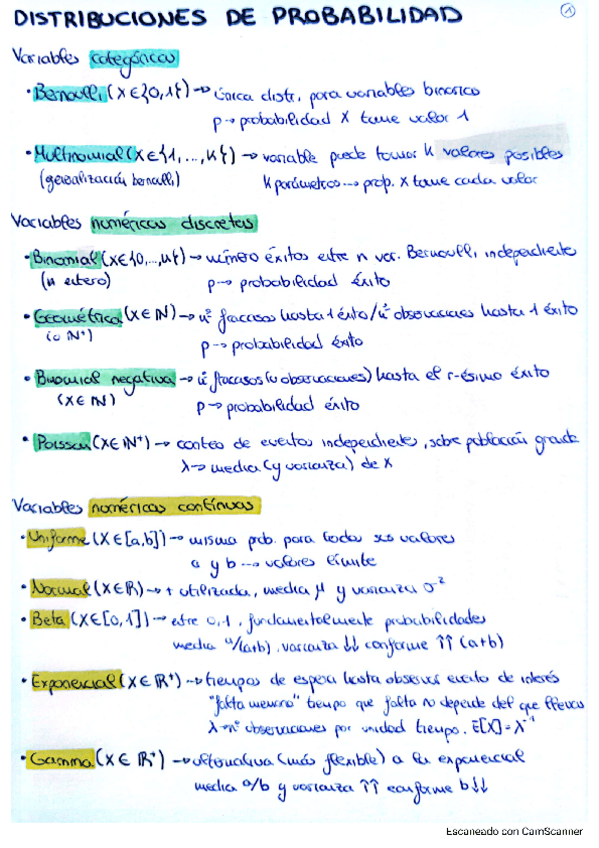 DISTRIBUCIONES DE PROBABILIDAD
1
Variables categóricas
· Bernoulli (X∈{0,1}) → única distr. para variables binarias
p → probabilidad X tome valor 1
· Multinomial (X∈{1,...,K}) → variable puede tomar K valores posibles
(generalización bernoulli) K parámetros → prop. X tome cada valor
Variables numéricas discretas
· Binomial (X∈{0,...,n}) → número éxitos entre n var. Bernoulli independiente
(n entero) p → probabilidad éxito
· Geométrica (X∈ℕ) → nº fracasos hasta 1 éxito/nº observaciones hasta 1 éxito
(o ℕ⁺) p → probabilidad éxito
· Binomial negativa → nº fracasos (u observaciones) hasta el r-ésimo éxito
(X∈ℕ) p → probabilidad éxito
· Poisson (X∈ℕ⁺) → conteo de eventos independientes, sobre población grande
λ → media (y varianza) de X
Variables numéricas contínuas
· Uniforme (X∈[a,b]) → misma prob. para todos sus valores
a y b → valores límite
· Normal (X∈ℝ) → + utilizada, media μ y varianza σ²
· Beta (X∈[0,1]) → entre 0,1, fundamentalmente probabilidades
media a/(a+b), varianza ↓↓ conforme ↑↑ (a+b)
· Exponencial (X∈ℝ⁺) → tiempos de espera hasta observar evento de interés
"falta memoria" tiempo que falta no depende del que llevas
λ → nº observaciones por unidad tiempo. E[X]=λ⁻¹
· Gamma (X∈ℝ⁺) → alternativa (más flexible) a la exponencial
media a/b y varianza ↑↑ conforme b↓↓
Escaneado con CamScanner